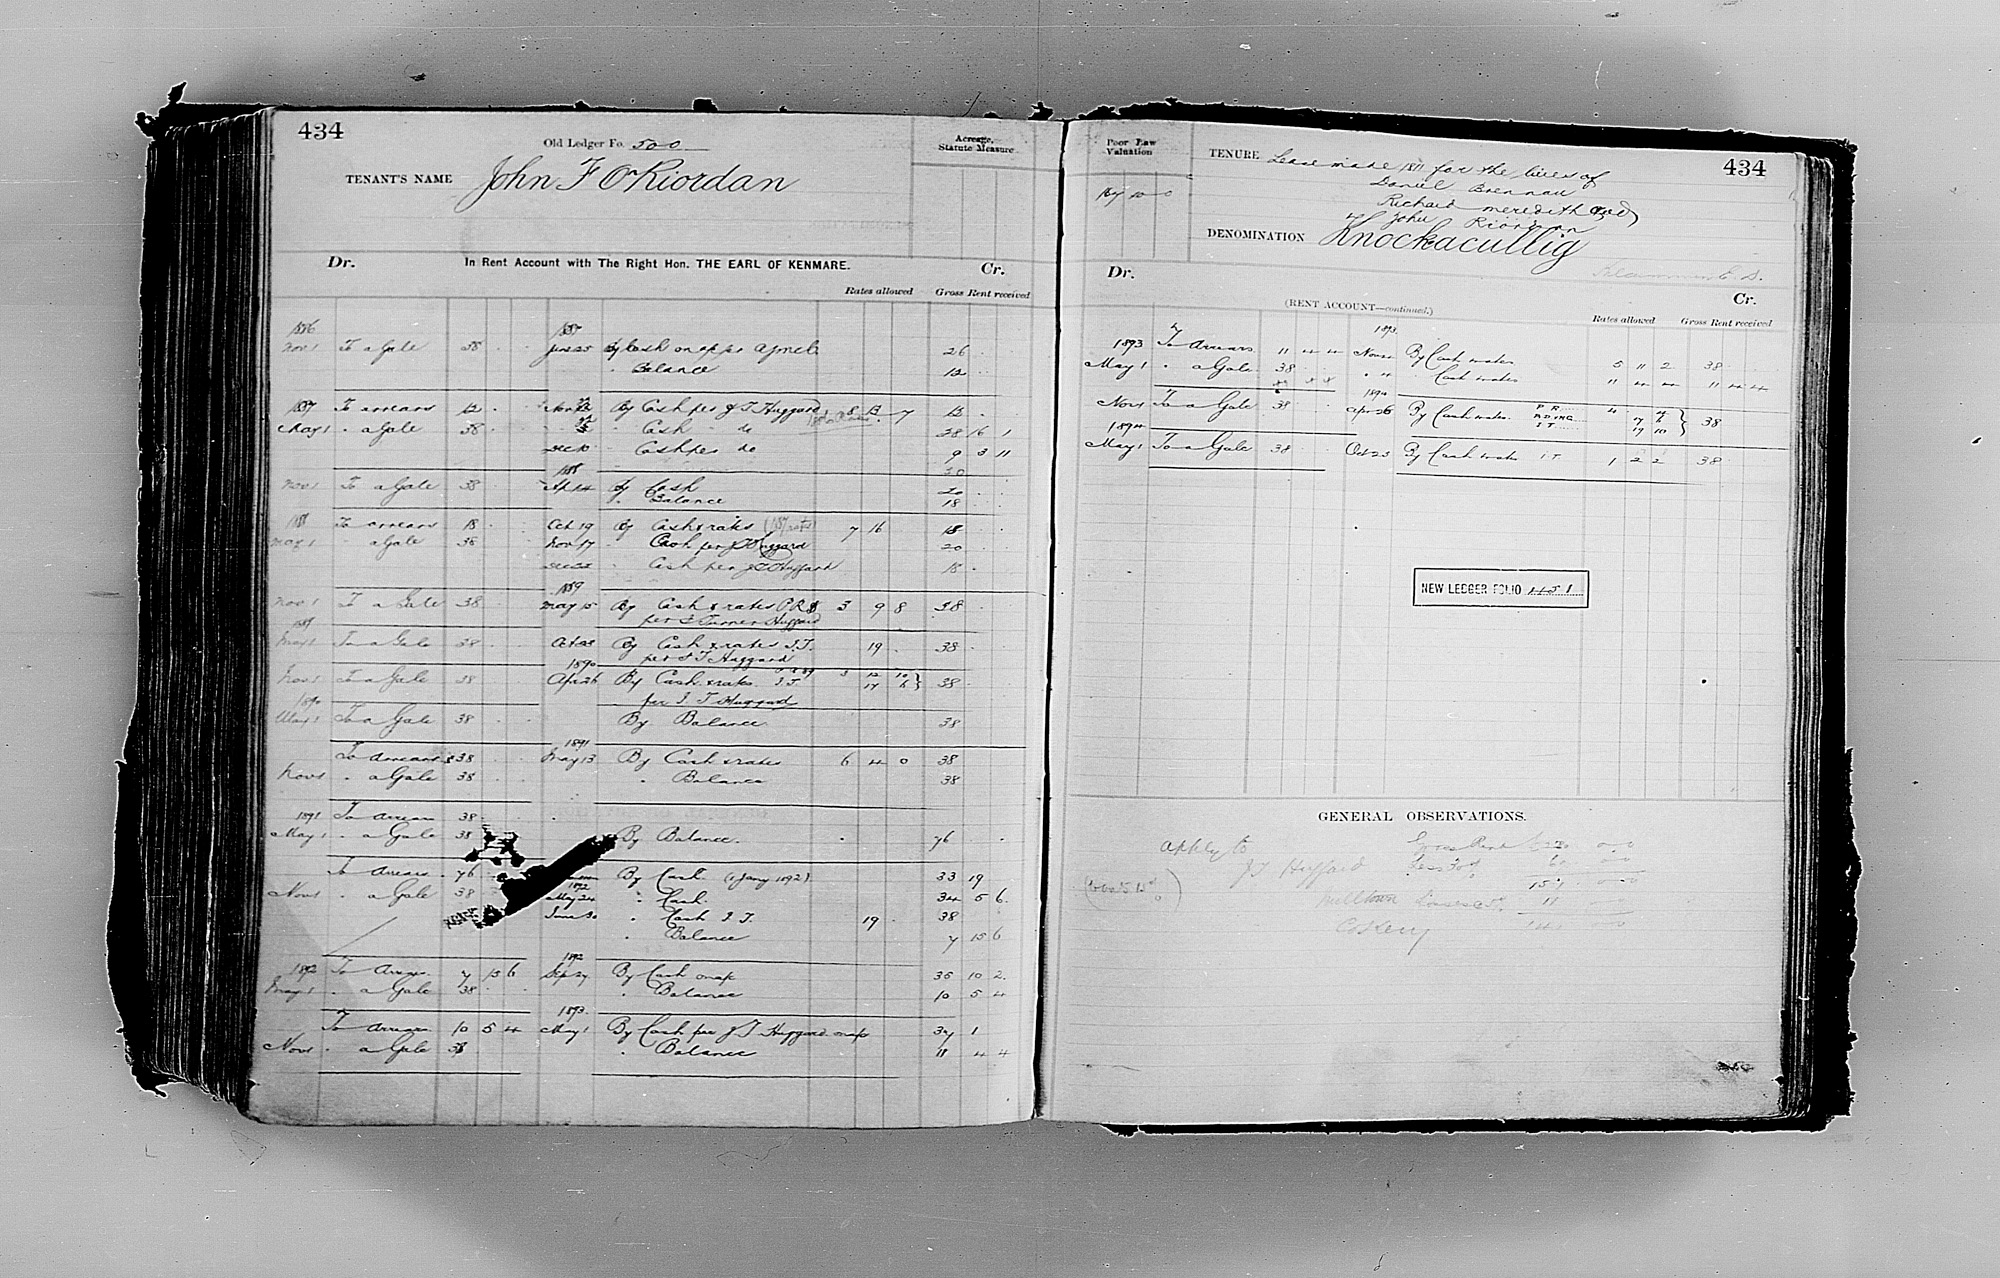 434
Old Ledger Fo. 500
Acreage, Statute Measure
TENANT'S NAME John F O'Riordan
Dr. In Rent Account with The Right Hon. THE EARL OF KENMARE. Cr.
Rates allowed Gross Rent received
1886 1887
Nov 1 To a Gale 38 June 25 By Cash on a/c per 26
" Balance 12
1887 To arrears 12 By Cash per J T Huggard 8 13 7 12
May 1 " a Gale 38 " Cash do 28 16 1
Dec 10 Cash per do 9 3 11
1888
Nov 1 To a Gale 38 Apl 14 By Cash 20
" Balance 18
1888 To arrears 18 Oct 19 By Cash & rates (187 rates) 7 16 18
May 1 " a Gale 38 Nov 17 " Cash per J T Huggard 20
Dec 22 Cash per J T Huggard 18
1889
Nov 1 To a Gale 38 May 15 By Cash & rates P.R. 3 9 8 38
per J Turner Huggard
1889
May 1 To a Gale 38 Oct 28 By Cash & rates I.T. 19 38
per J T Huggard
1890
Nov 1 To a Gale 38 Apr 26 By Cash & rates I T 3 12 10 38
17 6
per J T Huggard
1890
May 1 To a Gale 38 By Balance 38
1891
To arrears 38 May 13 By Cash & rates 6 4 0 38
Nov 1 " a Gale 38 " Balance 38
1891 To Arrears 38
May 1 " a Gale 38 By Balance. 76
To Arrears 76 By Cash (1 Jany 1892) 33 19
1892
Nov 1 " a Gale 38 May 24 " Cash 34 5 6
June 30 " Cash I T. 19 38
" Balance 7 15 6
1892
1892 To Arrears 7 15 6 Sep 27 By Cash on a/c 35 10 2
May 1 " a Gale 38 " Balance 10 5 4
1893
To Arrears 10 5 4 May 1 By Cash per J T Huggard on a/c 37 1
Nov 1 " a Gale 38 " Balance 11 4 4
Poor Law Valuation
167 10 0
TENURE Lease made 1811 for the lives of
434
Daniel Brennan
Richard Meredith and
John Riordan
DENOMINATION Knockacullig
Dr. Cr.
(RENT ACCOUNT—continued.)
Rates allowed Gross Rent received
1893
1893 To Arrears 11 4 4 By Cash & rates 5 11 2 38
May 1 " a Gale 38 " " Cash & rates 11 4 4 11 4 4
1894
Nov 1 To a Gale 38 Apr 26 By Cash & rates P.R. 38
I T 19 10
1894
May 1 To a Gale 38 Oct 23 By Cash & rates I T 1 2 2 38
NEW LEDGER FOLIO 451
GENERAL OBSERVATIONS.
Apply to
J T Huggard
Gross Rent
Milltown
Co Kerry